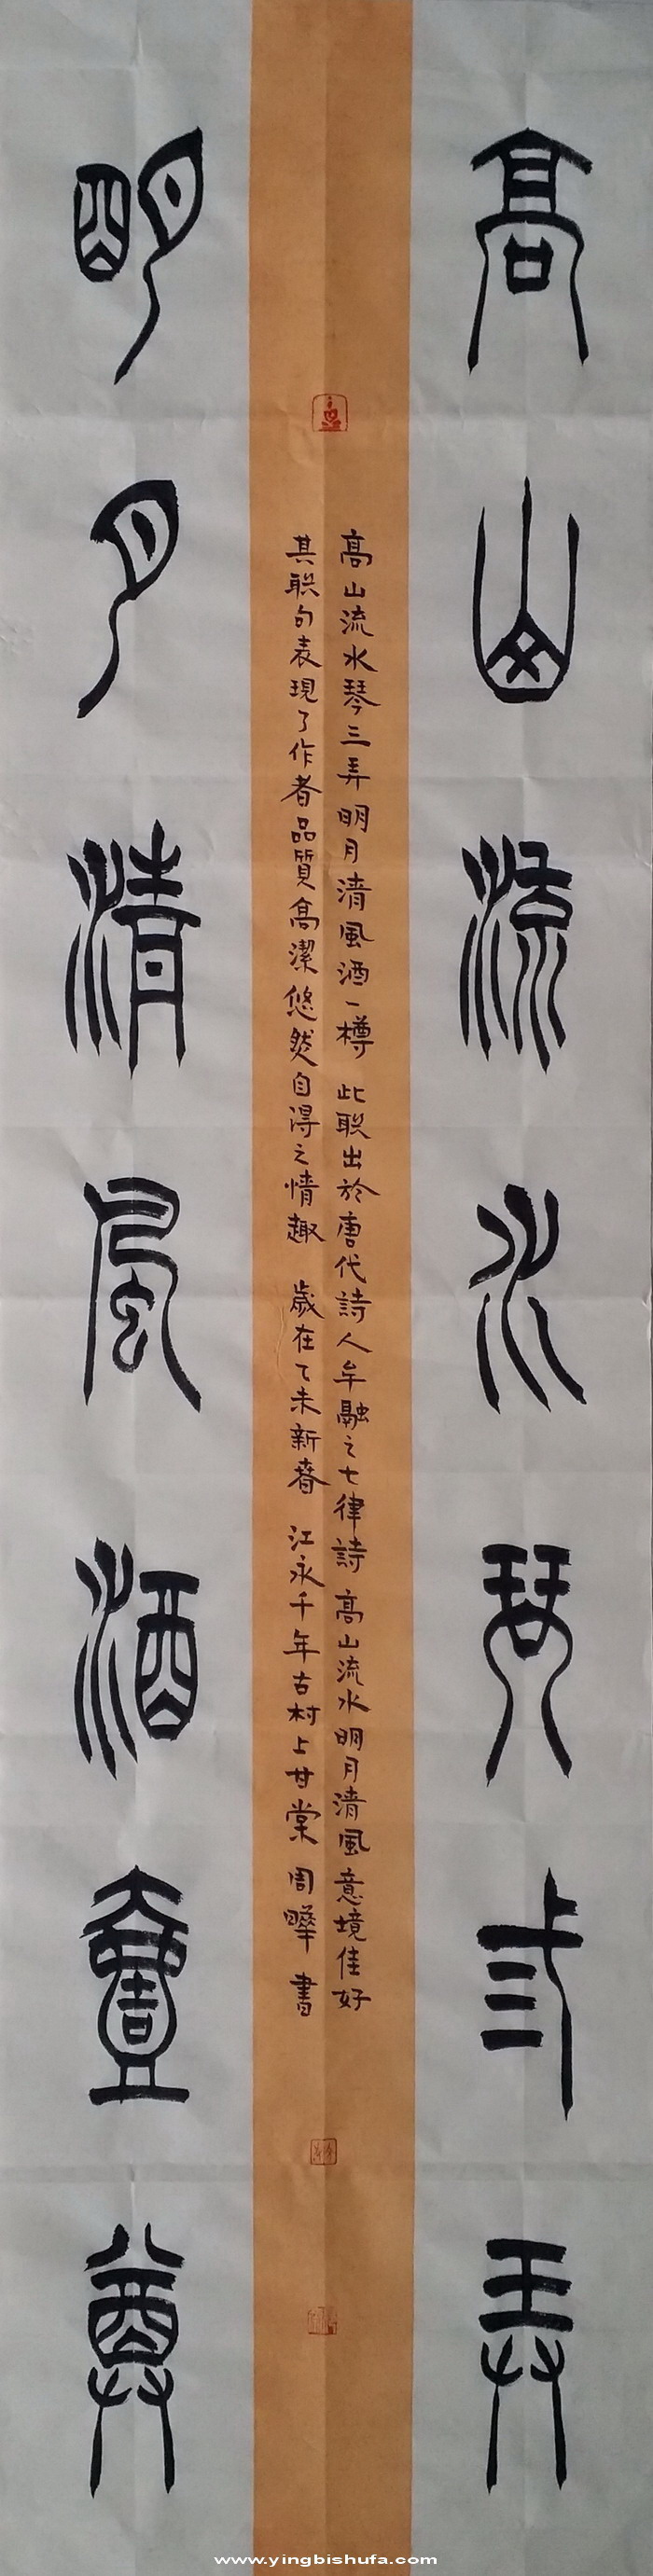 高山流水琴弎弄
高山流水琴三弄明月清風酒一樽 此联出於唐代詩人牟融之七律詩 高山流水明月清風意境佳好
其联句表現了作者品質高潔悠然自得之情趣 歲在乙未新春 江永千年古村上甘棠 周曄 書
明月清風酒壹尊
www.yingbishufa.com